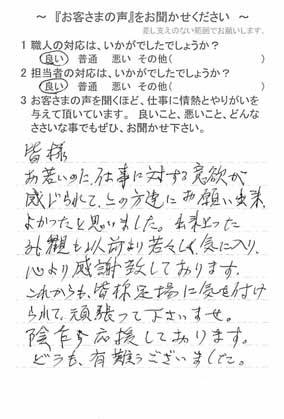 ～ 『お客さまの声』をお聞かせください ～
差し支えのない範囲でお願いします。
1 職人の対応は、いかがでしたでしょうか？
良い 普通 悪い その他(
2 担当者の対応は、いかがでしたでしょうか？
良い 普通 悪い その他(
3 お客さまの声を聞くほど、仕事に情熱とやりがいを
与えて頂いています。 良いこと、悪いこと、どんな
ささいな事でもぜひ、お聞かせ下さい。
皆様
お若いのに、仕事に対する意欲が
感じられて、この方達にお願い出来
よかったと思いました。出来上った
外観も以前より若々しく気に入り、
心より感謝致しております。
これからも、皆様足場に気を付け
られて、頑張って下さいませ。
陰乍ら応援しております。
どうも、有難うございました。